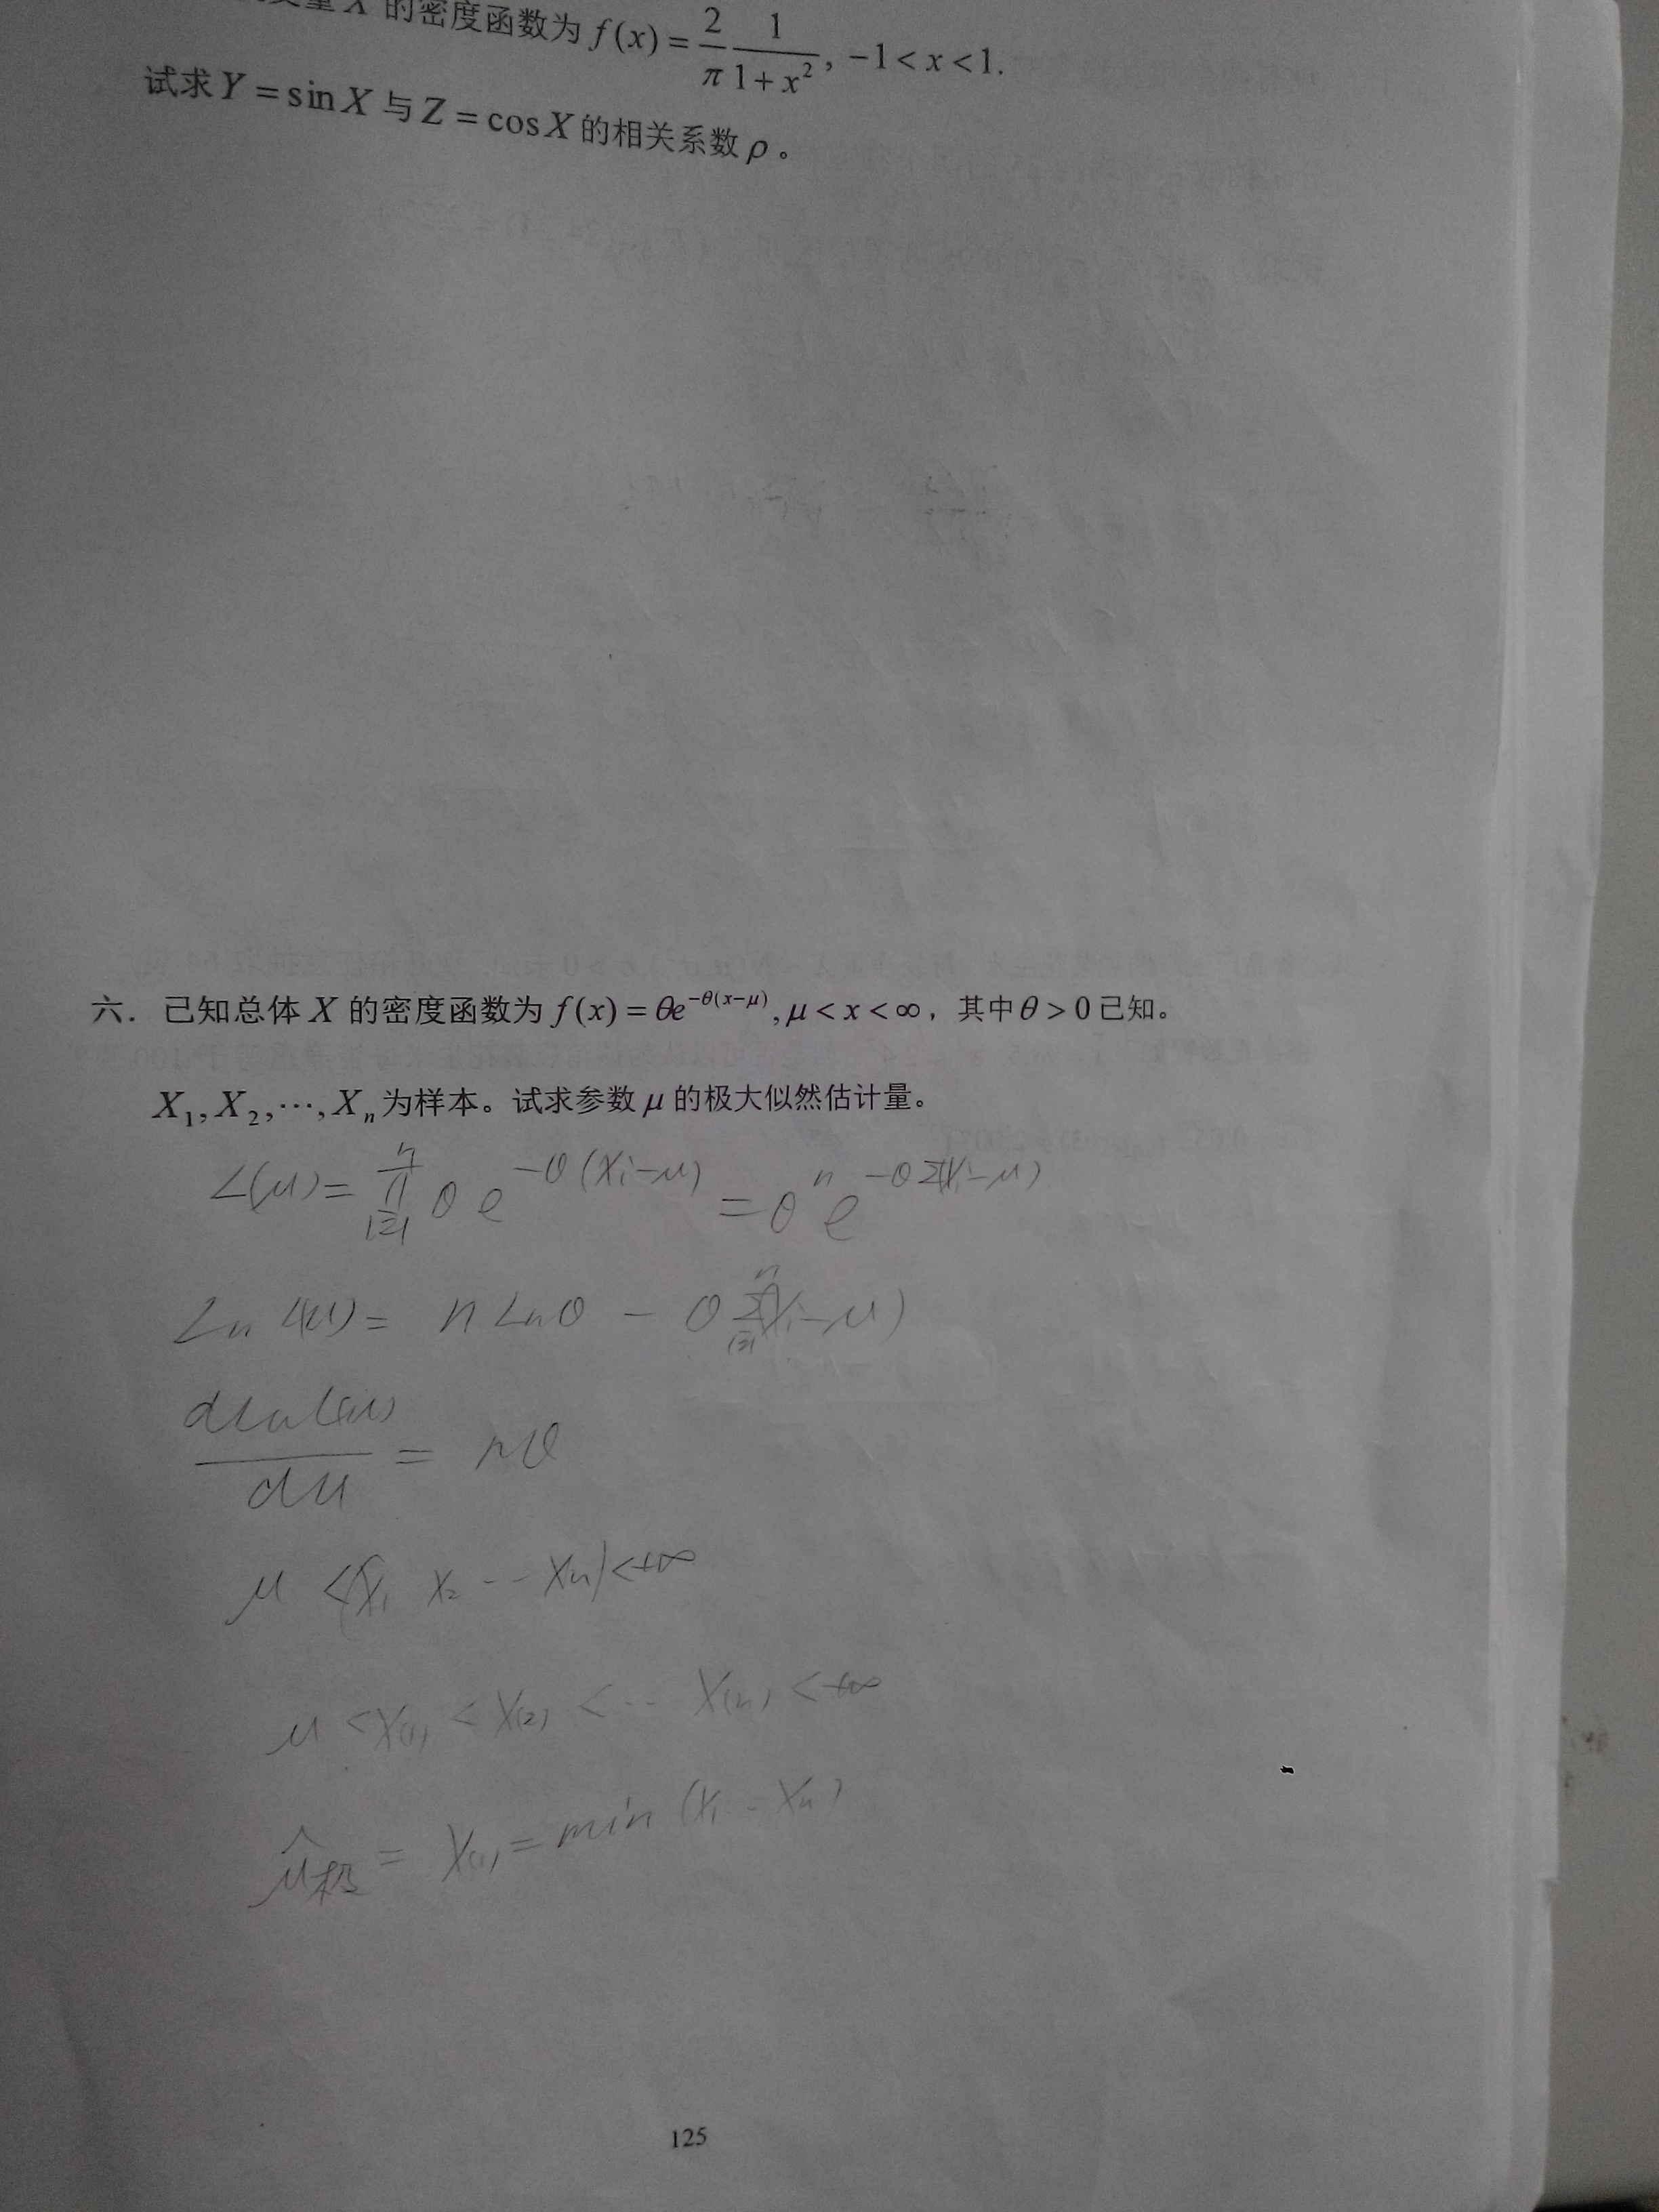 量 X 的密度函数为 f(x) = 2/π 1/(1+x²), -1 < x < 1.
试求 Y = sin X 与 Z = cos X 的相关系数 ρ 。
六. 已知总体 X 的密度函数为 f(x) = θe^{-θ(x-μ)}, μ < x < ∞, 其中 θ > 0 已知。
X₁, X₂, ⋯, Xₙ 为样本。试求参数 μ 的极大似然估计量。
L(μ) = ∏_{i=1}^{n} θ e^{-θ(Xi-μ)} = θ^n e^{-θΣ(Xi-μ)}
Ln L(μ) = n Ln θ - θ Σ_{i=1}^{n}(Xi-μ)
dLnL(μ)/dμ = nθ
μ < (X₁ X₂ -- Xₙ) < +∞
μ < X(1) < X(2) < -- X(n) < +∞
μ̂极 = X(1) = min (X₁ - Xₙ)
125